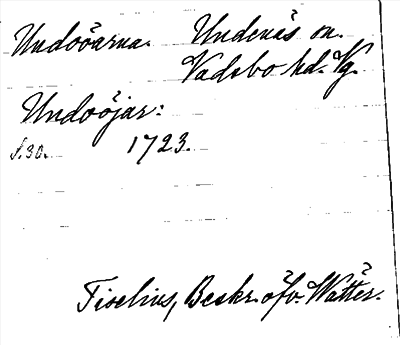 Undoöarna. Undenäs sn.
Vadsbo hd. Vg.
Undoöjar:
s. 30. 1723.
Tiselius, Beskr. öfv. Wätter.